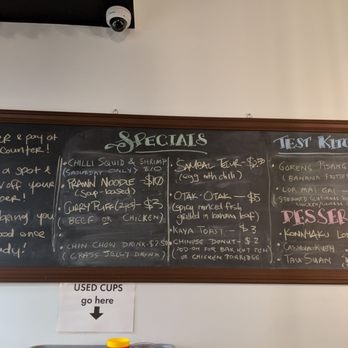 & pay at
counter!
a spot &
off your
bring you
once
ady!
SPECIALS
• CHILLI SQUID & SHRIMP
(SATURDAY ONLY) $10
• PRAWN NOODLE - $10
(Soup-based)
• CURRY PUFF (2pcs) - $3
BEEF OR CHICKEN)
• CHIN CHOW DRINK - $2.50
(GRASS JELLY DRINK)
• SAMBAL TELUR - $2.50
(egg with chili)
• OTAK-OTAK - $5
(spicy minced fish
grilled in banana leaf)
• KAYA TOAST - $3
• CHINESE DONUT - $2
(ADD-ON FOR BAK KUT TEH
OR CHICKEN PORRIDGE
TEST KITC
• GORENG PISANG
(BANANA FRITTER
• LOR MAI GAI
DESSER
• TAU SUAN
USED CUPS
go here